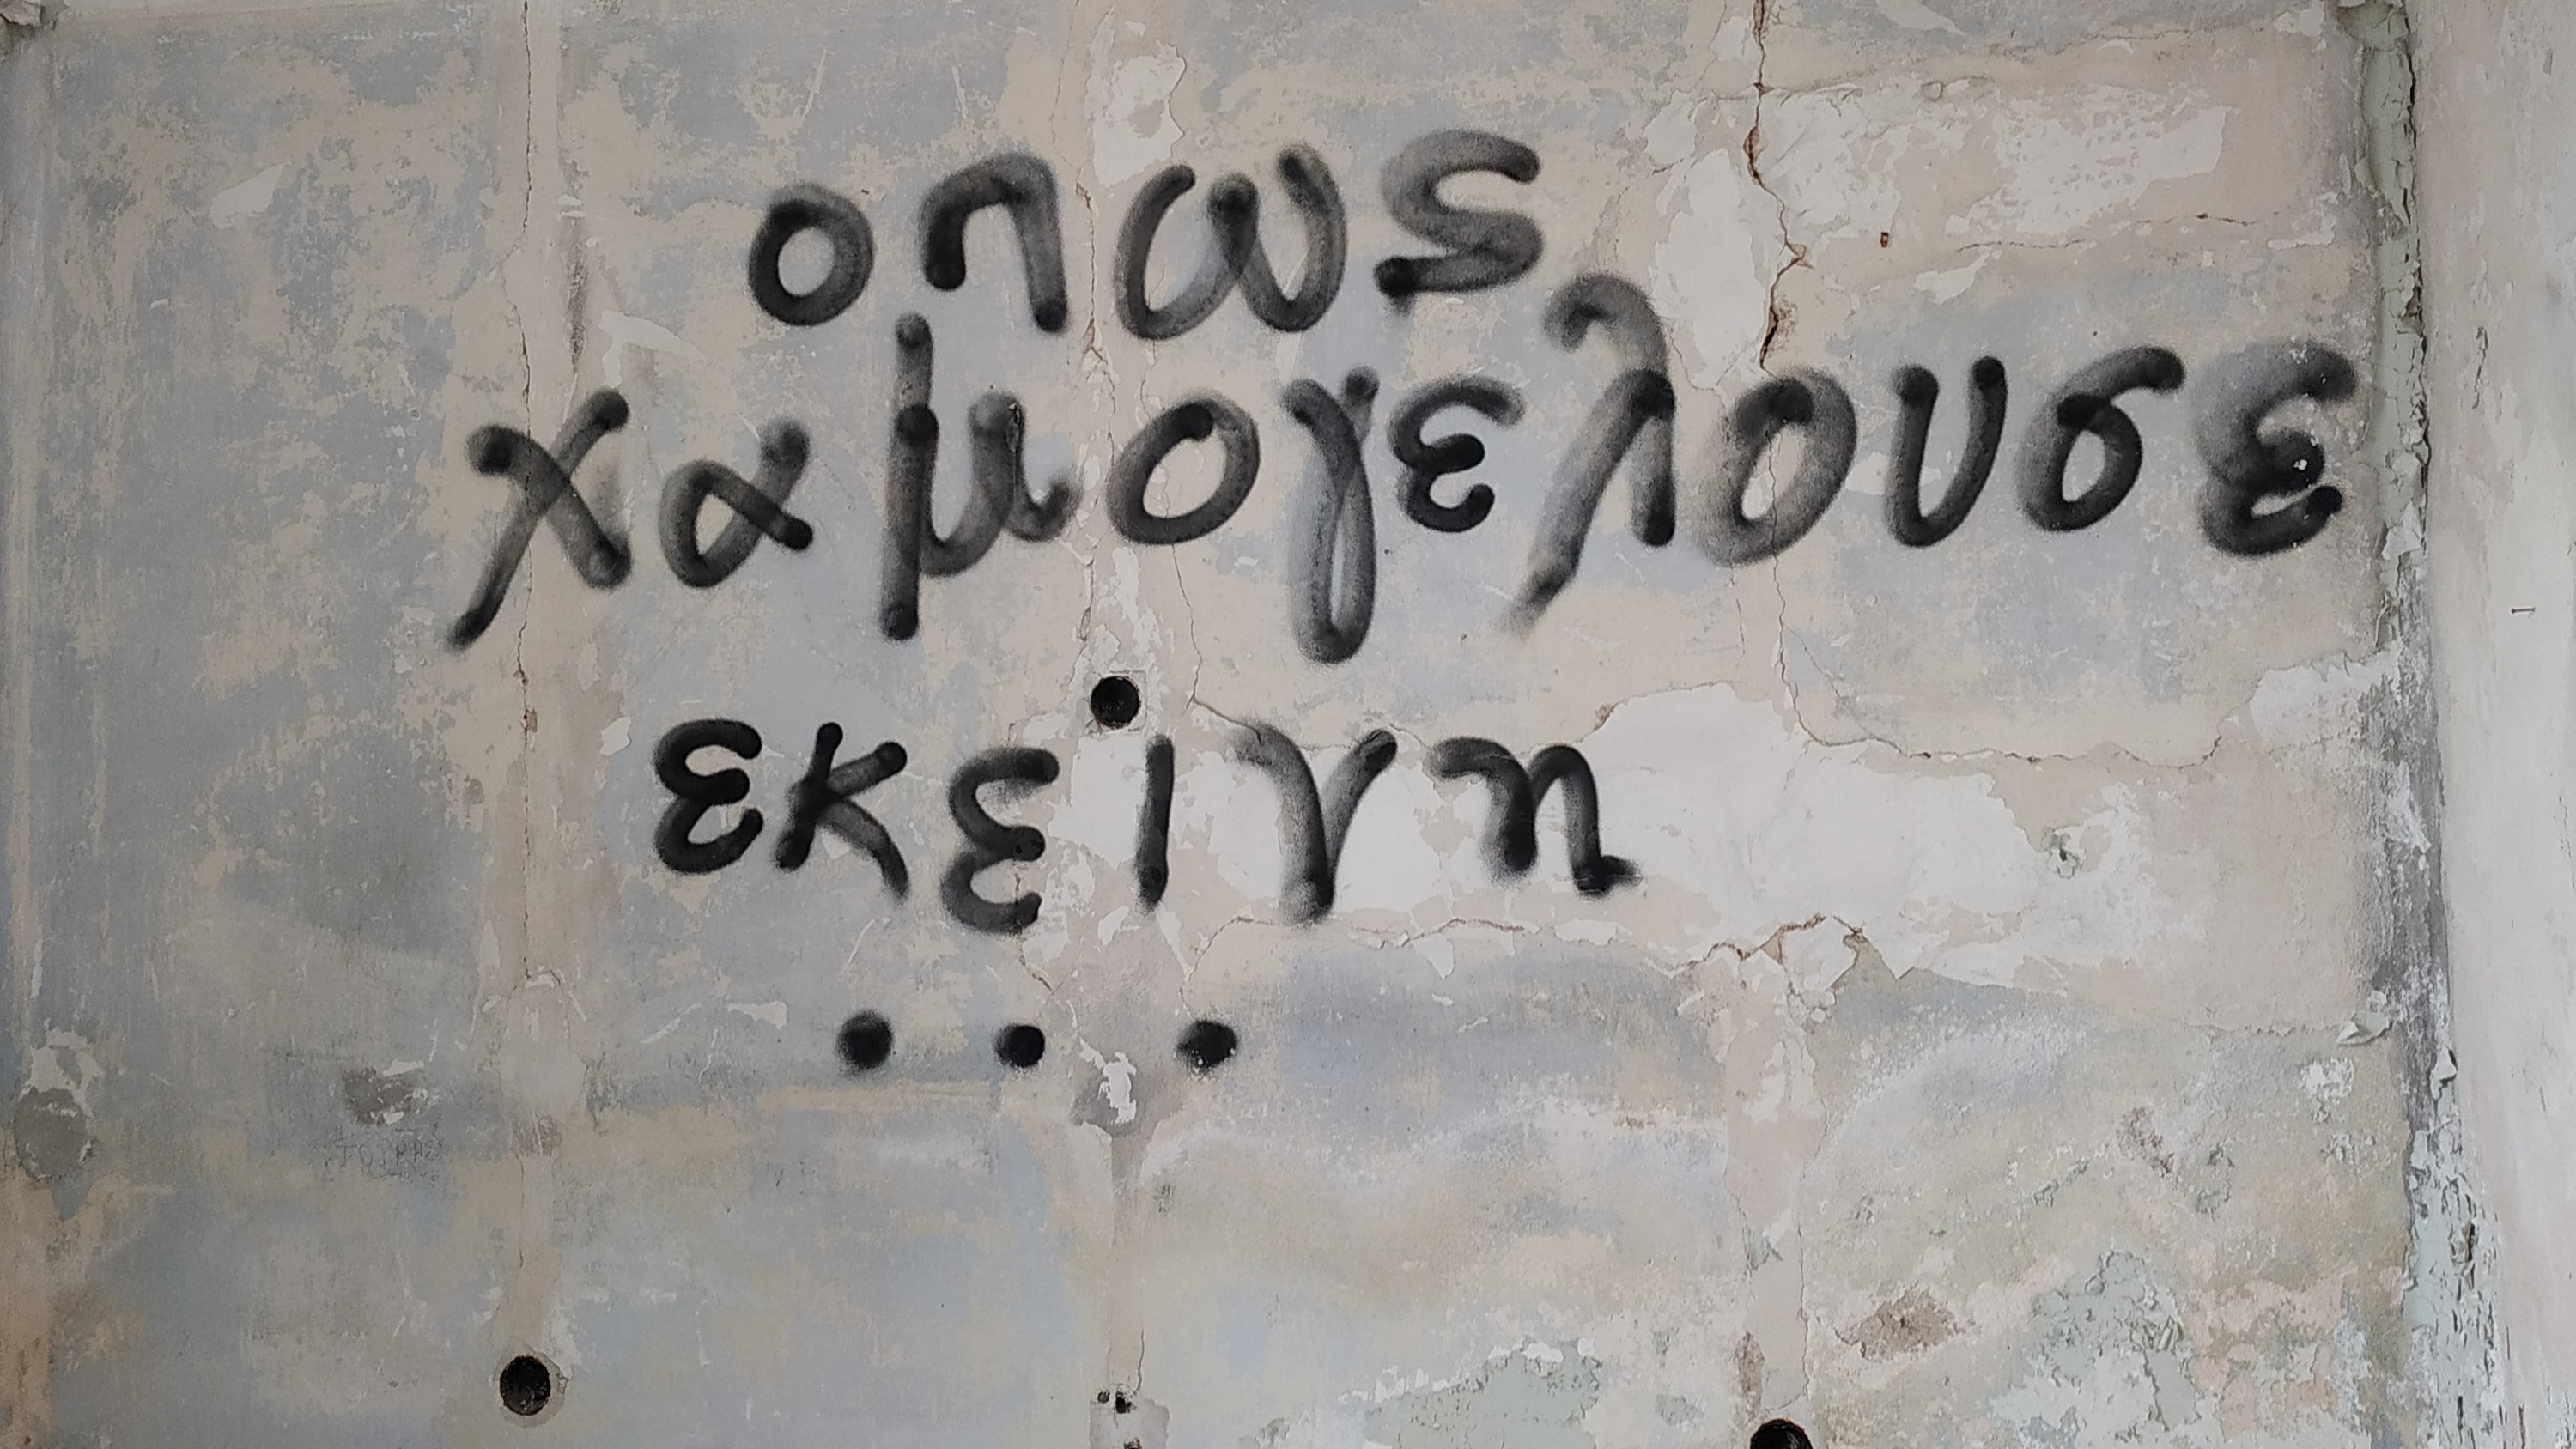 οπως
χαμογελουσε
εκεινη
...